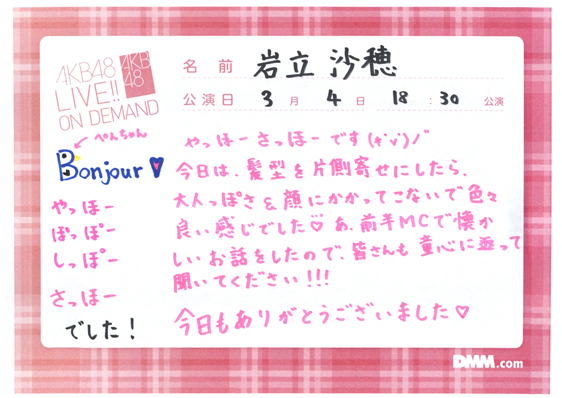 AKB48
LIVE!!
ON DEMAND
AKB
48
名前 岩立 沙穂
公演日 3月 4日 18:30 公演
ぺんちゃん
Bonjour♥
やっほー
ぽっぽー
しっぽー
さっほー
でした!
やっほーさっほーです(*'v')ノ"
今日は、髪型を片側寄せにしたら、
大人っぽさ&顔にかかってこないで色々
良い感じでした♡ あ、前半MCで懐か
しいお話をしたので、皆さんも童心に返って
聞いてください!!!
今日もありがとうございました♡
DMM.com